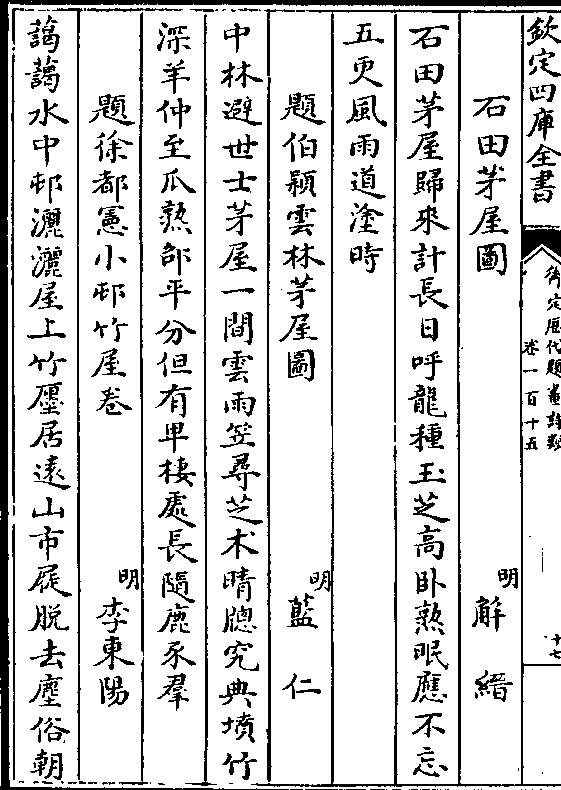 欽定四庫全書
御定歷代題畫詩類
卷一百十五
十七
石田茅屋圖
明
解縉
石田茅屋歸來計長日呼龍種玉芝高卧熟眠應不忘
五更風雨道塗時
題伯穎雲林茅屋圖
明
藍仁
中林避世士茅屋一間雲雨笠尋芝术晴牕究典墳竹
深羊仲至瓜熟邵平分但有卑棲處長隨鹿豕羣
題徐都憲小邨竹屋卷
明
李東陽
藹藹水中邨灑灑屋上竹壥居遠山市屣脱去塵俗朝